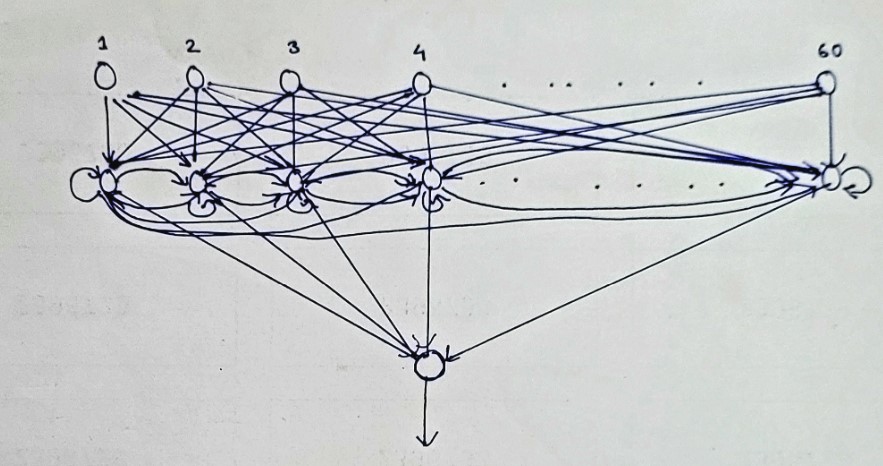 1 2 3 4 60